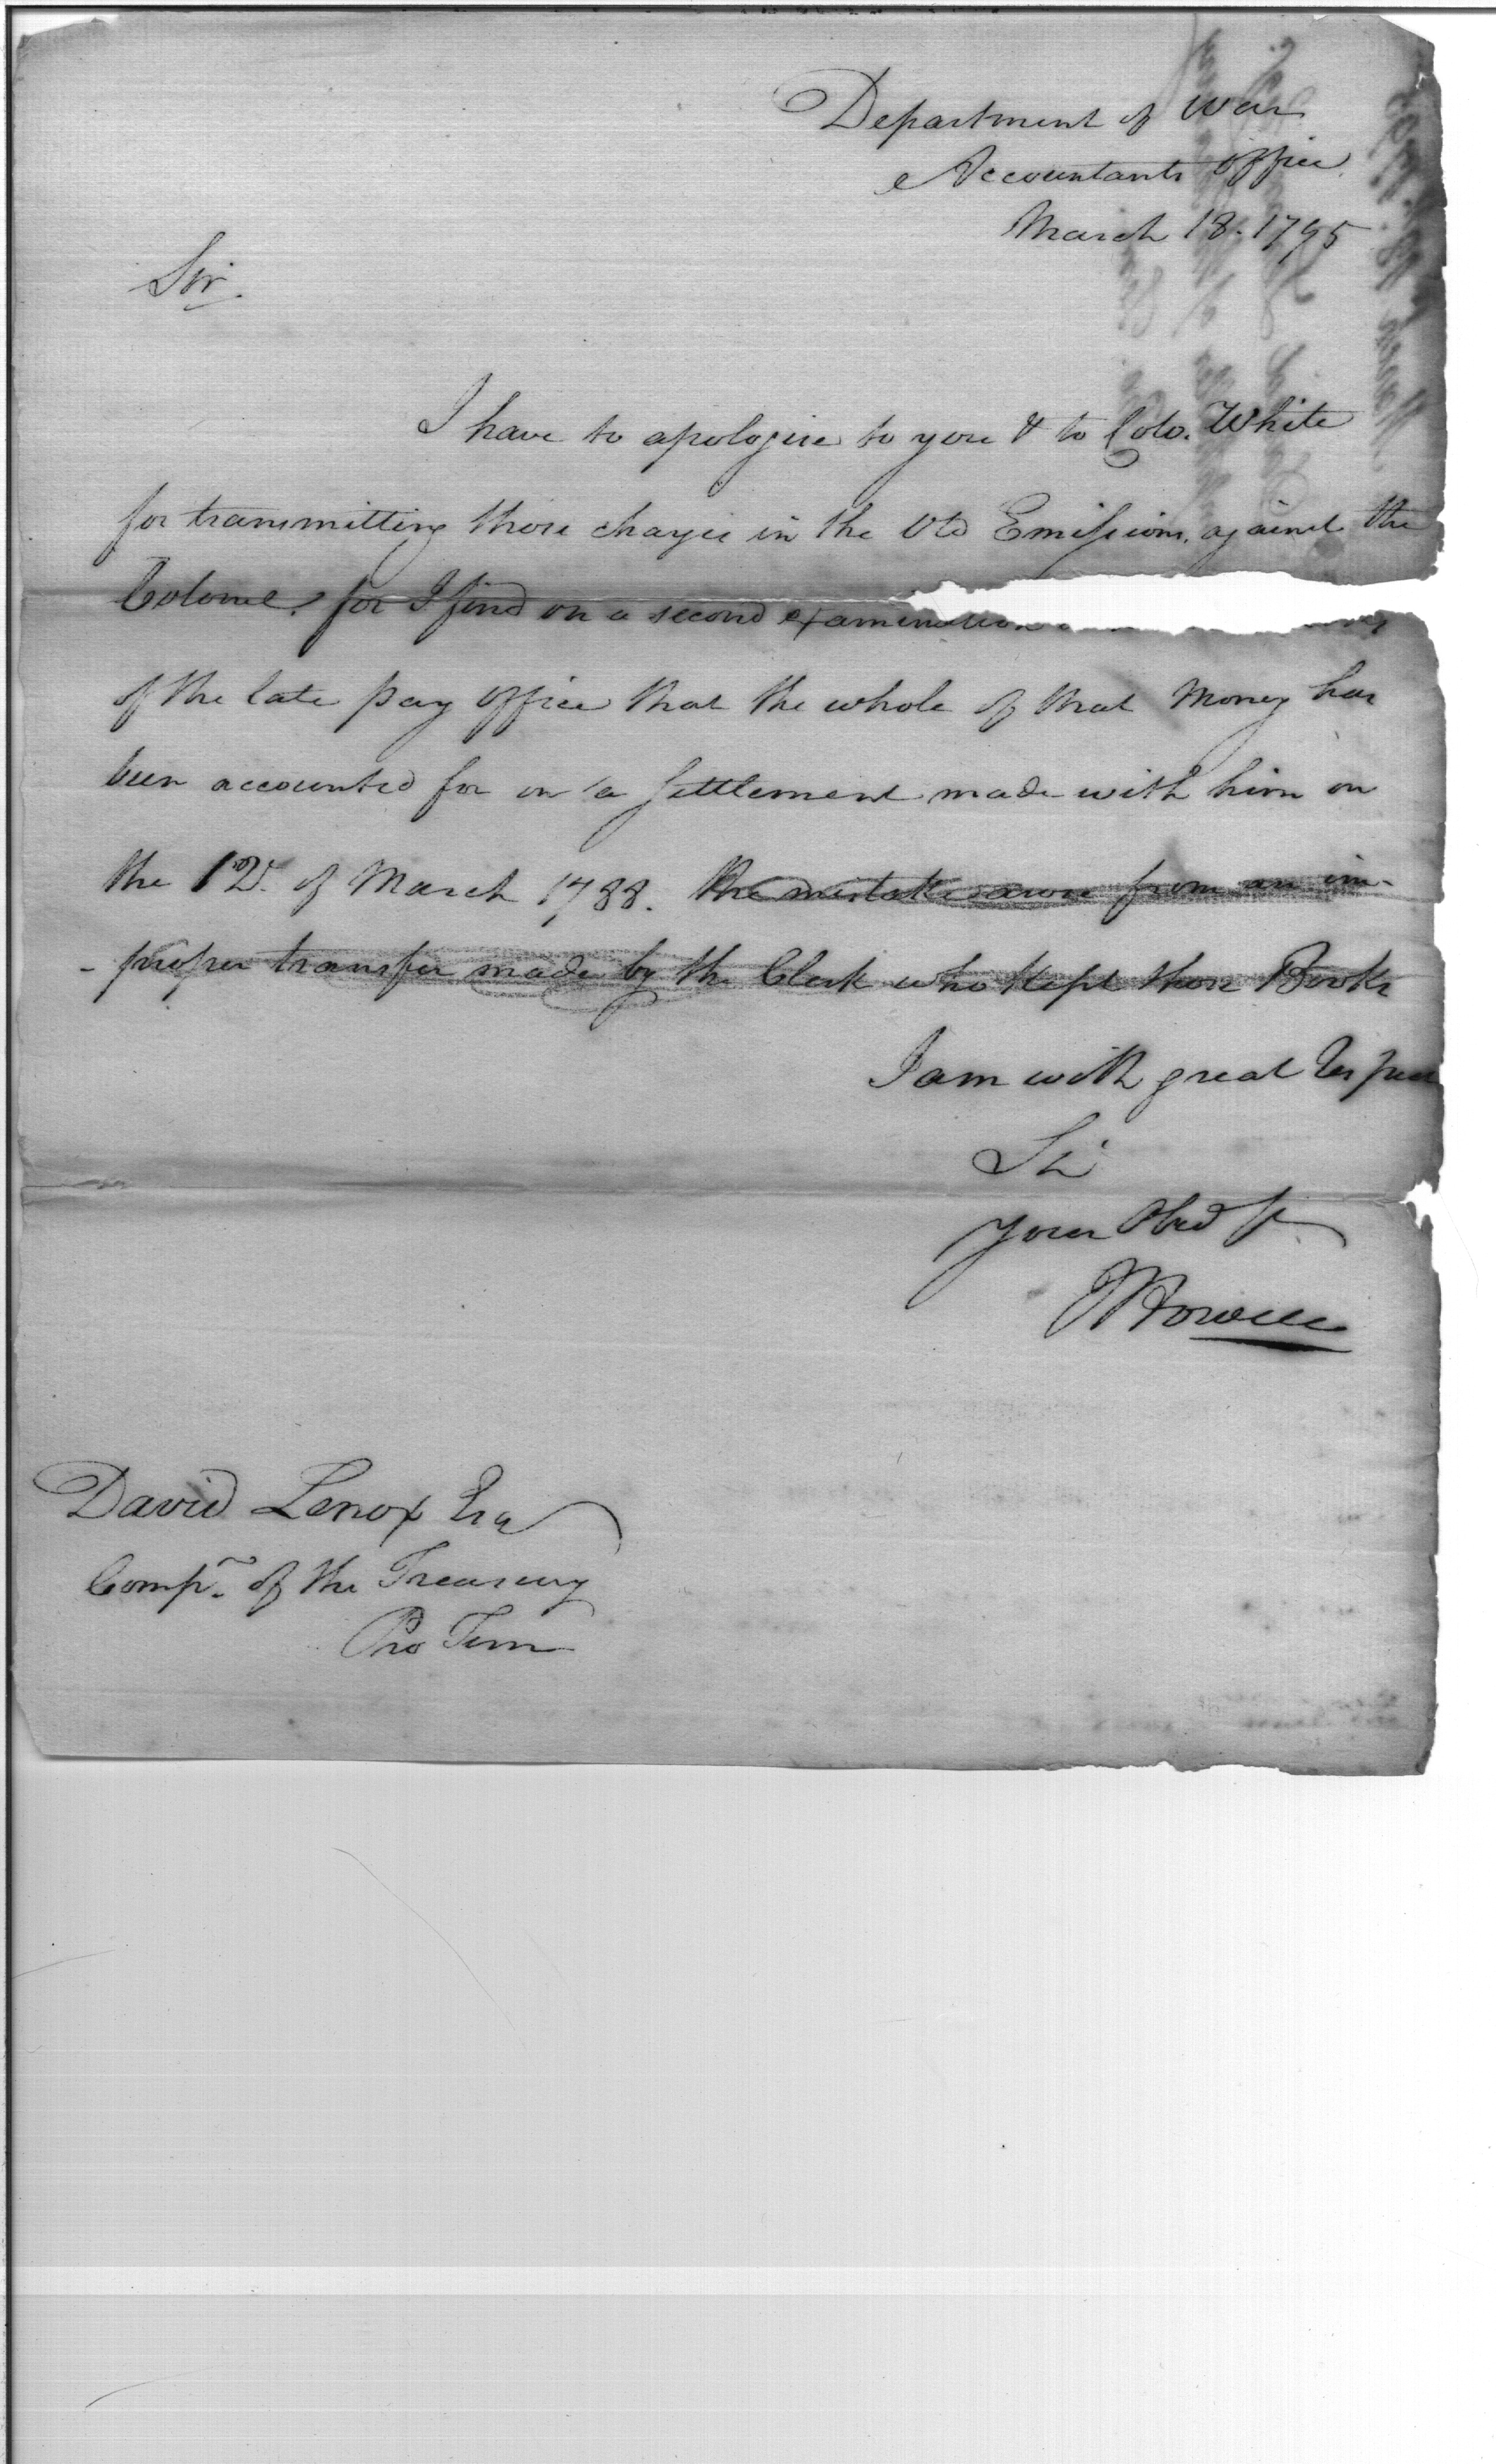 Department of War
Accountants Office
March 18. 1795
Sir.
I have to apologise to you & to Colo. White
for transmitting those charges in the Old Emissions, against the
Colonel, for I find on a second examination
of the late pay Office that the whole of that Money has
been accounted for on a Settlement made with him on
the of March 1788. the mistake arose from an im-
-proper transfer made by the Clerk who kept those Books
I am with great Respect
Sir
Your Obed St
JHowell
David Lenox Esq
Compr. of the Treasury
Pro Tem